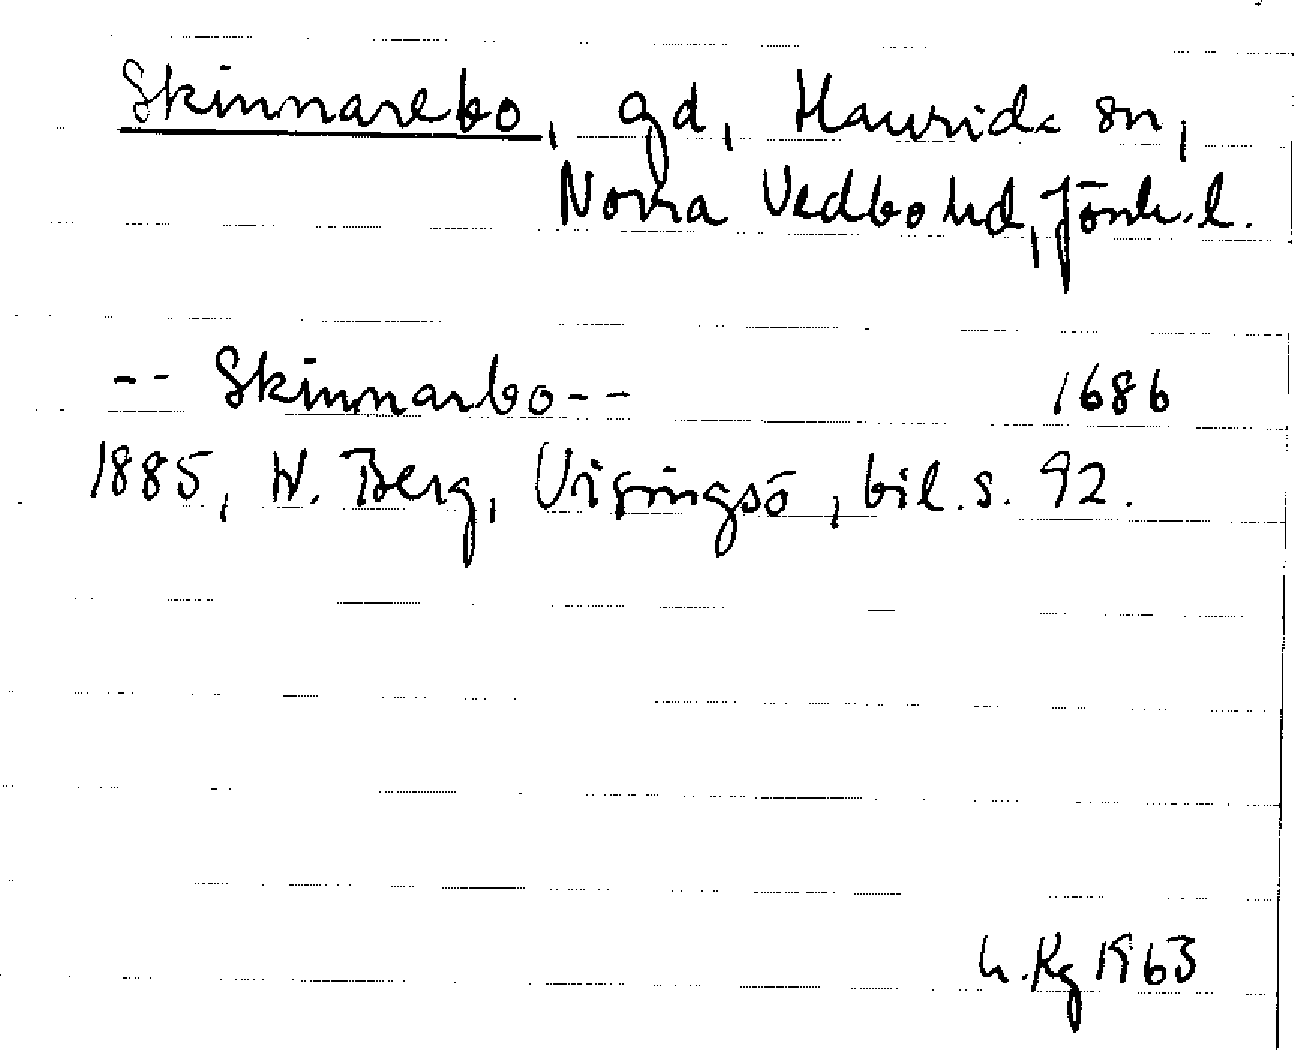 Skinnarebo, gd, Haurida sn,
Norra Vedbo hd, Jönk. l.
-- Skinnarbo -- 1686
1885, W. Berg, Visingsö, bil. s. 92.
h. Rg 1963